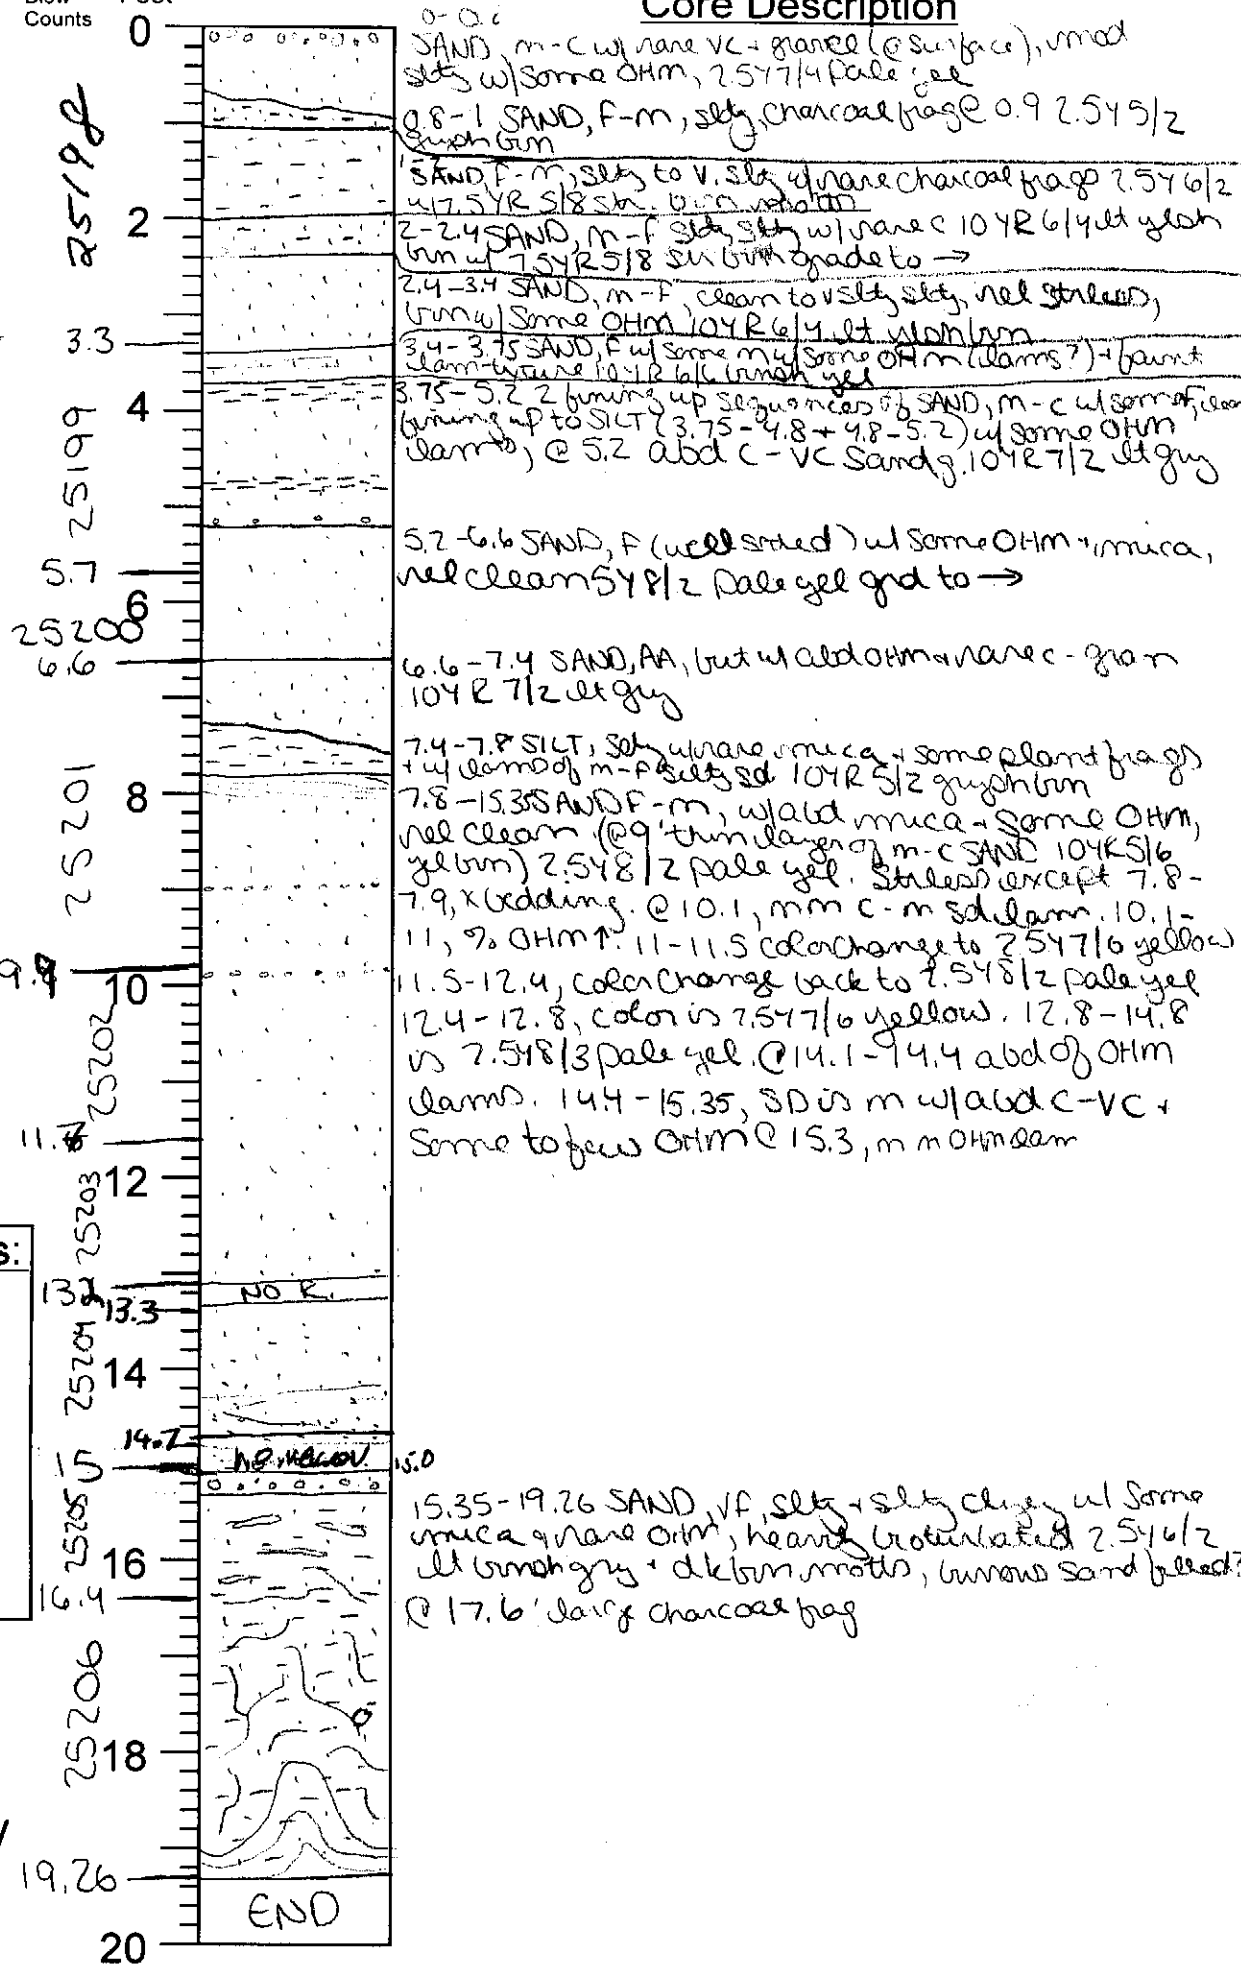 Counts
Core Description
0
2
4
6
8
10
12
14
16
18
20
25198
3.3
25199
5.7
25200
6.6
25201
9.9
25202
25203
13.3
25204
14.7
15
25205
16.4
25206
19.26
NO R.
no recov. 15.0
END
SAND, m-c w/ rare vc + gravel (@ surface), mod
slty w/ some OHM, 2.5Y7/4 pale yel
0.8-1 SAND, F-m, slty, charcoal frag @ 0.9 2.5Y5/2
gryph brn
SAND, F-m, slty to v. slty w/ rare charcoal frags 2.5Y6/2
w/ 7.5YR 5/8 str. brn
2-2.4 SAND, m-F slty w/ rare c 10YR 6/4 lt ylsh
brn w/ 7.5YR5/8 str brn grade to →
2.4-3.4 SAND, m-F, clean to v slty slty, rel strless,
brn w/ some OHM 10YR 6/4 lt ylsh brn
3.4-3.75 SAND, F w/ some m w/ some OHM (lams?) + faint
10YR 6/6 brnsh yel
3.75-5.2 2 fining up sequences of SAND, m-c w/ some f, clean
fining up to SILT (3.75-4.8 + 4.8-5.2) w/ some OHM
lams, @ 5.2 abd c-vc sand g. 10YR 7/2 lt gry
5.2-6.6 SAND, F (well sorted) w/ some OHM + mica,
rel clean 5Y8/2 pale yel grd to →
6.6-7.4 SAND, AA, but w/ abd OHM + rare c-gran
10YR 7/2 lt gry
7.4-7.8 SILT, sdy w/ rare mica + some plant frags
+ w/ lams of m-F silty sd 10YR 5/2 gryph brn
7.8-15.35 SAND F-m, w/ abd mica + some OHM,
rel clean (@9' thin layer of m-c SAND 10YR5/6
yel brn) 2.5Y8/2 pale yel. Strless except 7.8-
7.9, x bedding. @ 10.1, mm c-m sd lam. 10.1-
11, % OHM↑. 11-11.5 color change to 2.5Y7/6 yellow
11.5-12.4, color change back to 2.5Y8/2 pale yel
12.4-12.8, color is 2.5Y7/6 yellow. 12.8-14.8
is 2.5Y8/3 pale yel. @ 14.1-14.4 abd of OHM
lams. 14.4-15.35, SD is m w/ abd c-vc +
some to few OHM @ 15.3, mm OHM lam
15.35-19.26 SAND, vf, slty + slty clyey w/ some
mica + rare OHM, heavily bioturbated 2.5Y6/2
lt brnsh gry + dk brn motts, burrows sand filled?
@ 17.6' large charcoal frag